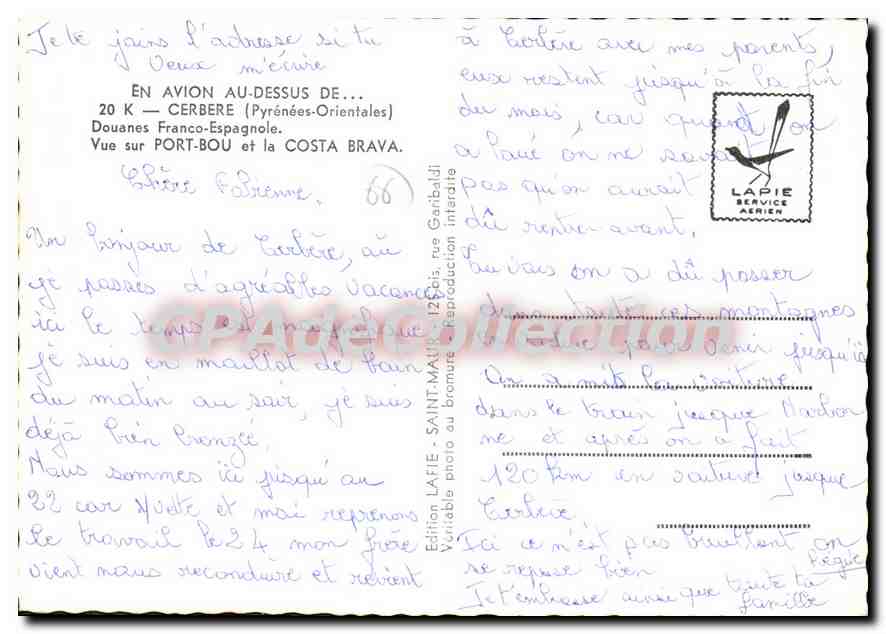 Je te joins l'adresse si tu
veux m'écrire
EN AVION AU-DESSUS DE...
20 K — CERBERE (Pyrénées-Orientales)
Douanes Franco-Espagnole.
Vue sur PORT-BOU et la COSTA BRAVA.
Chère Fabienne,
66
Un bonjour de Cerbère, où
je passes d'agréables vacances
ici le temps est magnifique
je suis en maillot de bain
du matin au soir, je suis
déjà bien bronzée.
Nous sommes ici jusqu'au
22 car et moi reprenons
le travail le 24 mon frère
vient nous reconduire et revient
Edition LAPIE - SAINT-MAUR - 125 bis, rue Garibaldi
Véritable photo au bromure - Reproduction interdite
à Cerbère avec mes parents,
eux restent jusqu'à la fin
du mois, car quand on
a loué on ne savait
pas qu'on aurait
dû rentrer avant.
Tu vois on a dû passer
dans toute ces montagnes
pour venir jusqu'ici
On a mis la voiture
dans le train jusque Narbon
ne et après on a fait
120 km en voiture jusque
Cerbère.
Ici ce n'est pas bruillant on
se repose bien
Je t'embrasse ainsi que toute ta
famille
LAPIE
SERVICE
AERIEN
CPAdeCollection